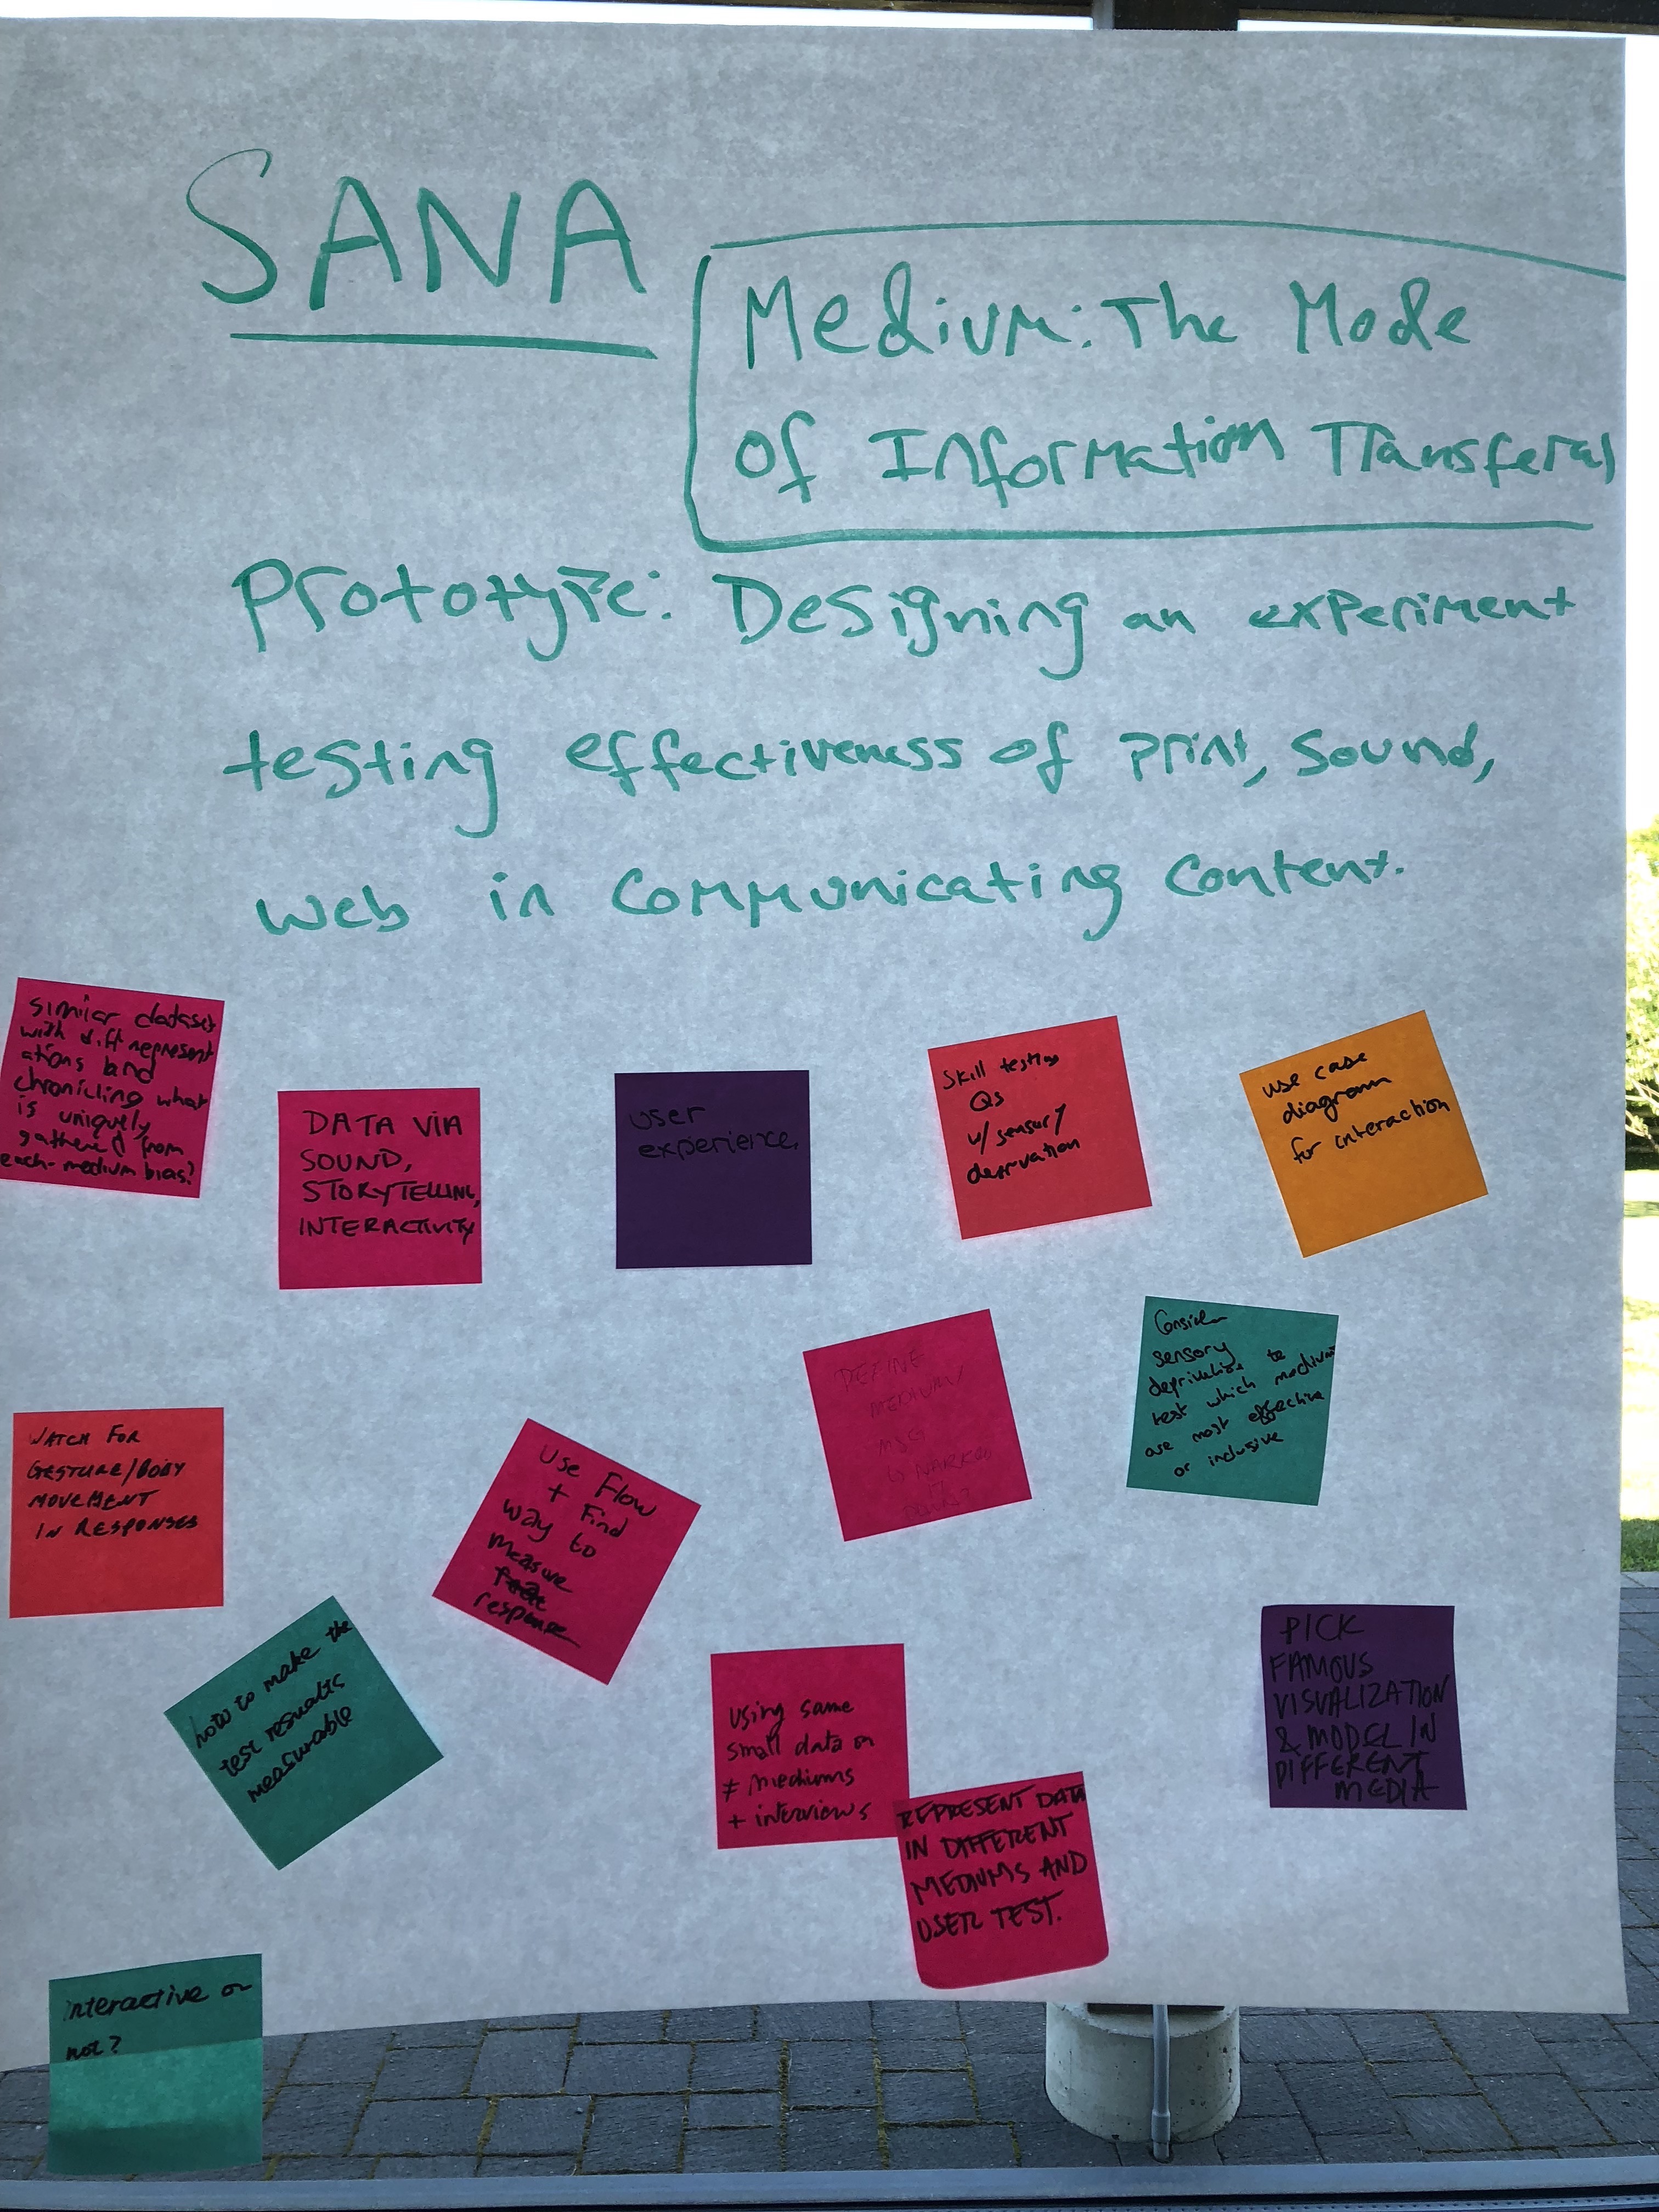 SANA
Medium: The Mode
of Information Transferal
Prototype: Designing an experiment
testing effectiveness of print, sound,
web in communicating content.
similar dataset
with diff represent
ations and
chronicling what
is uniquely
gathered from
each-medium bias?
DATA VIA
SOUND,
STORYTELLING,
INTERACTIVITY
user
experience.
Skill testing
Qs
w/ sensory
deprivation
use case
diagram
for interaction
Consider
sensory
deprivation to
test which mediums
are most effective
or inclusive
DEFINE
MEDIUM/
MSG
WATCH FOR
GESTURE/BODY
MOVEMENT
IN RESPONSES
Use Flow
+ Find
way to
measure
response
how to make the
test resualts
measurable
Using same
small data on
≠ mediums
+ interviews
REPRESENT DATA
IN DIFFERENT
MEDIUMS AND
USER TEST.
PICK
FAMOUS
VISUALIZATION
& MODEL IN
DIFFERENT
MEDIA
interactive or
not?